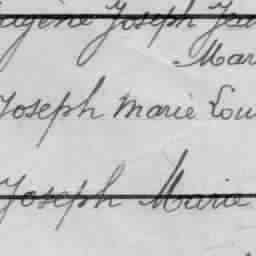 Joseph
Mar
Joseph Marie Lou
Joseph Marie